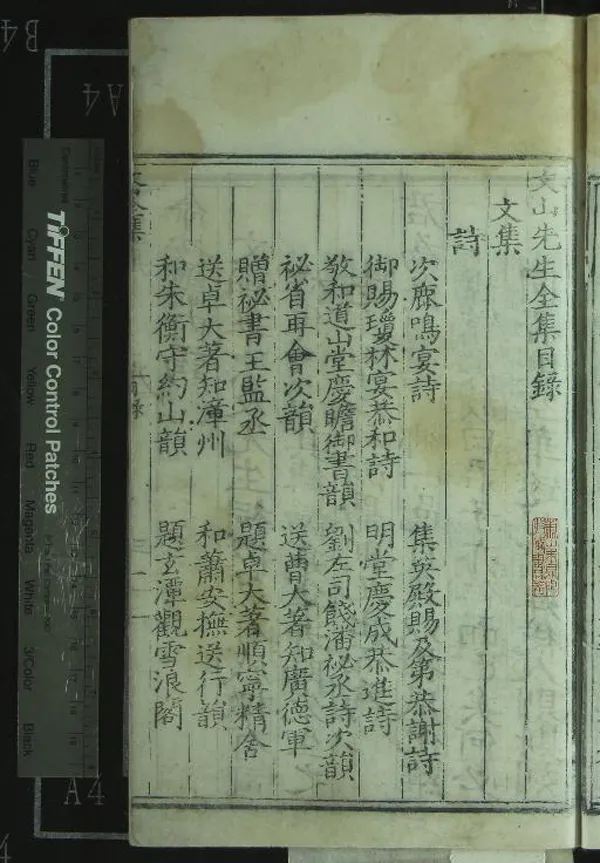 文山先生全集目錄
文集
詩
次鹿鳴宴詩 集英殿賜及第恭謝詩
御賜瓊林宴恭和詩 明堂慶成恭進詩
敬和道山堂慶瞻御書韻 劉左司餞潘祕丞詩次韻
祕省再會次韻 送曹大著知廣德軍
贈祕書王監丞 題卓大著順寧精舍
送卓大著知漳州 和蕭安撫送行韻
和朱衡守約山韻 題玄潭觀雪浪閣
全集
目錄
TIFFEN Color Control Patches
Blue
Cyan
Green
Yellow
Red
Magenta
White
3/Color
Black
B4
A4
A4